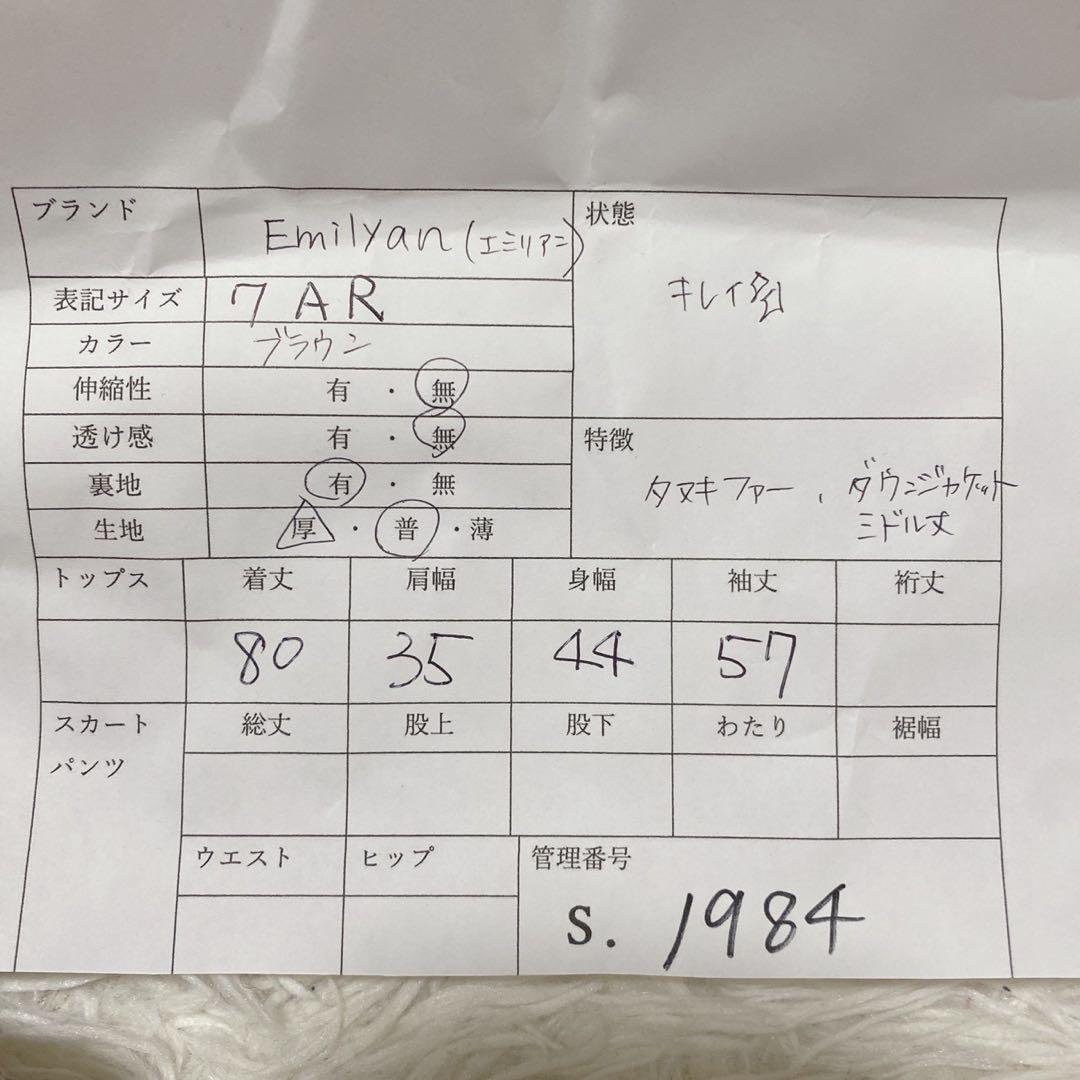 ブランド
Emilyan(エミリアン)
表記サイズ
7AR
カラー
ブラウン
伸縮性
有・無
透け感
有・無
裏地
有・無
生地
厚・普・薄
状態
キレイ
特徴
タヌキファー、ダウンジャケット
ミドル丈
トップス 着丈 肩幅 身幅 袖丈 裄丈
80 35 44 57
スカート 総丈 股上 股下 わたり 裾幅
パンツ
ウエスト ヒップ
管理番号
S. 1984